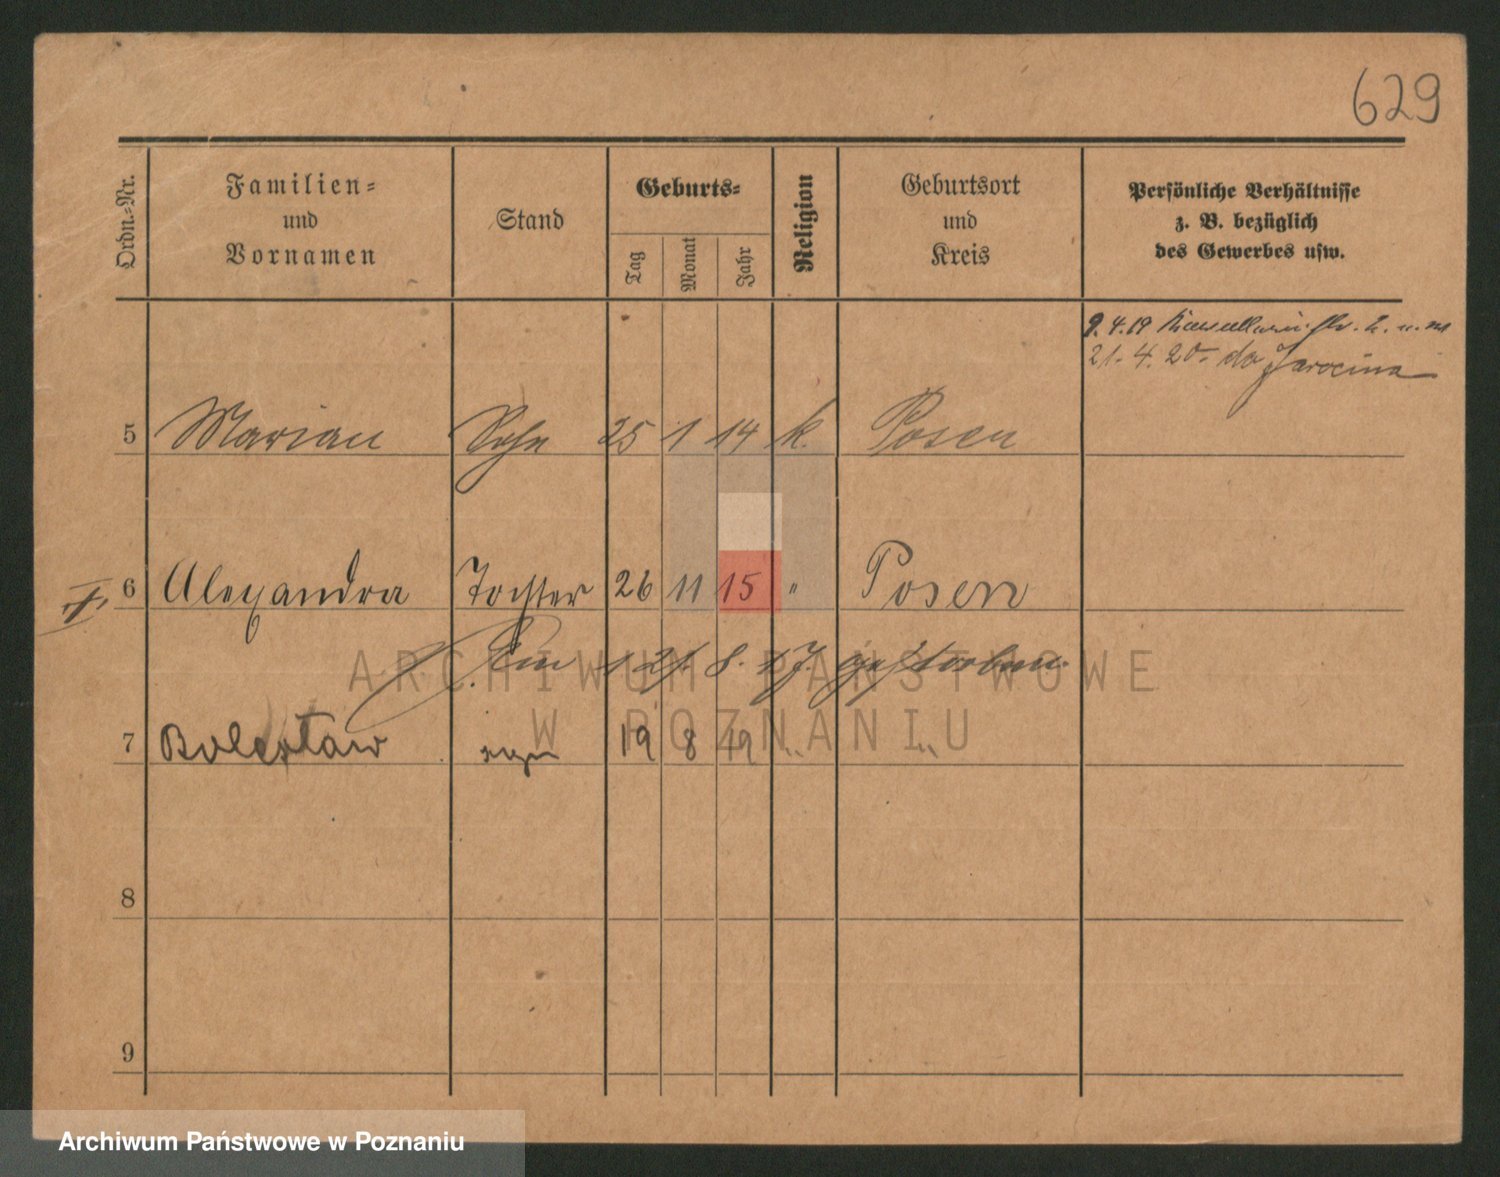 629
Ordn.-Nr.
Familien-
und
Vornamen
Stand
Geburts-
Tag
Monat
Jahr
Religion
Geburtsort
und
Kreis
Persönliche Verhältnisse
z. B. bezüglich
des Gewerbes usw.
9.4.19
21.4.20 do Jarocina
5 Marian Sohn 25 1 14 k. Posen
6 Alexandra Tochter 26 11 15 " Posen
Am 8. 17. gestorben.
7 Bolesław syn 19 8 19 " "
8
9
ARCHIWUM PAŃSTWOWE
W POZNANIU
Archiwum Państwowe w Poznaniu